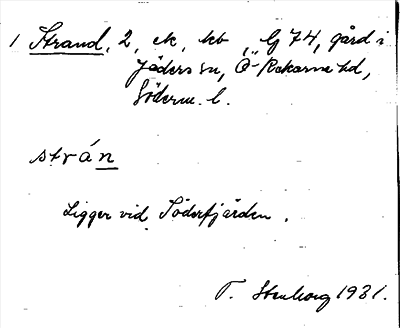 1 Strand, 2, ek, kb, Lj 74, gård i
Jäders sn, Ö-Rekarne hd,
Söderm. l.
strán
Ligger vid Söderfjärden.
T. Stenborg 1931.